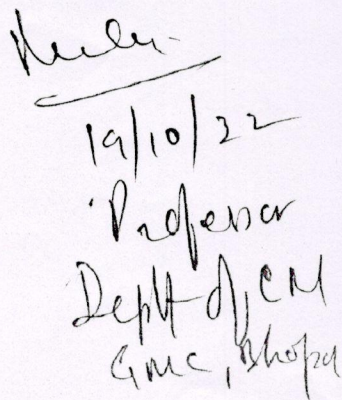 19/10/22
Professor
Deptt of CM
GMC, Bhopal